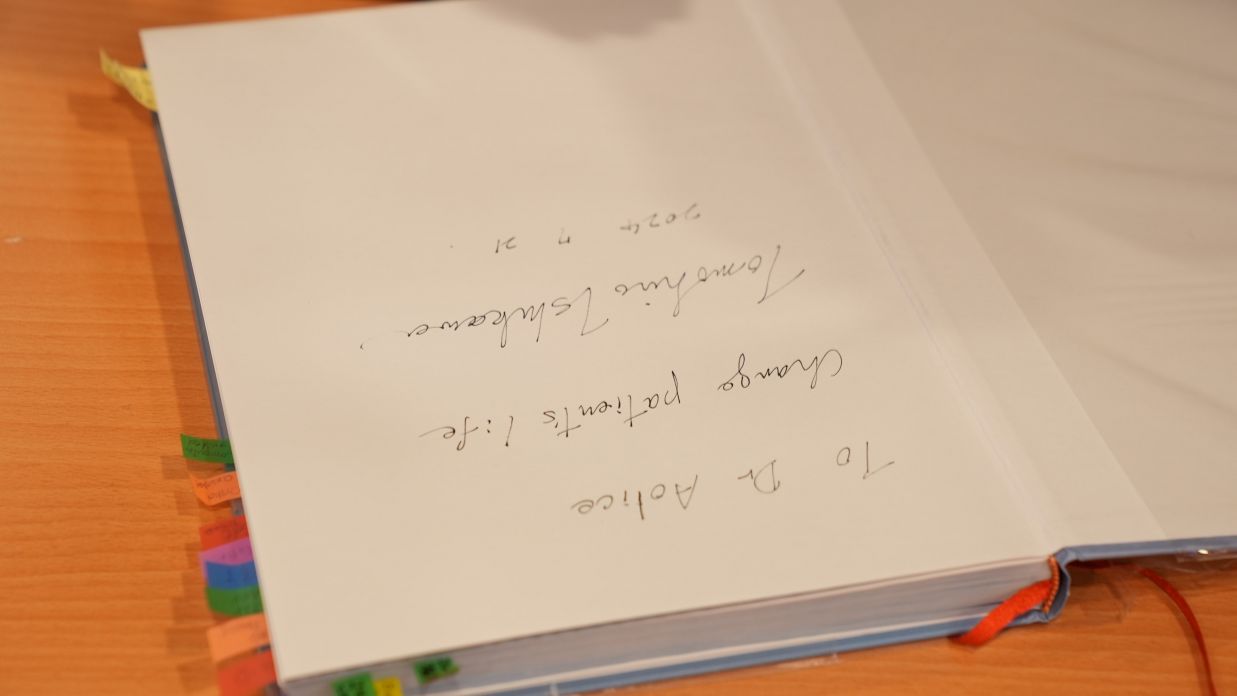 To Dr Aolice
Change patient's life
Tomohiro Ishikawa
2024 7 21